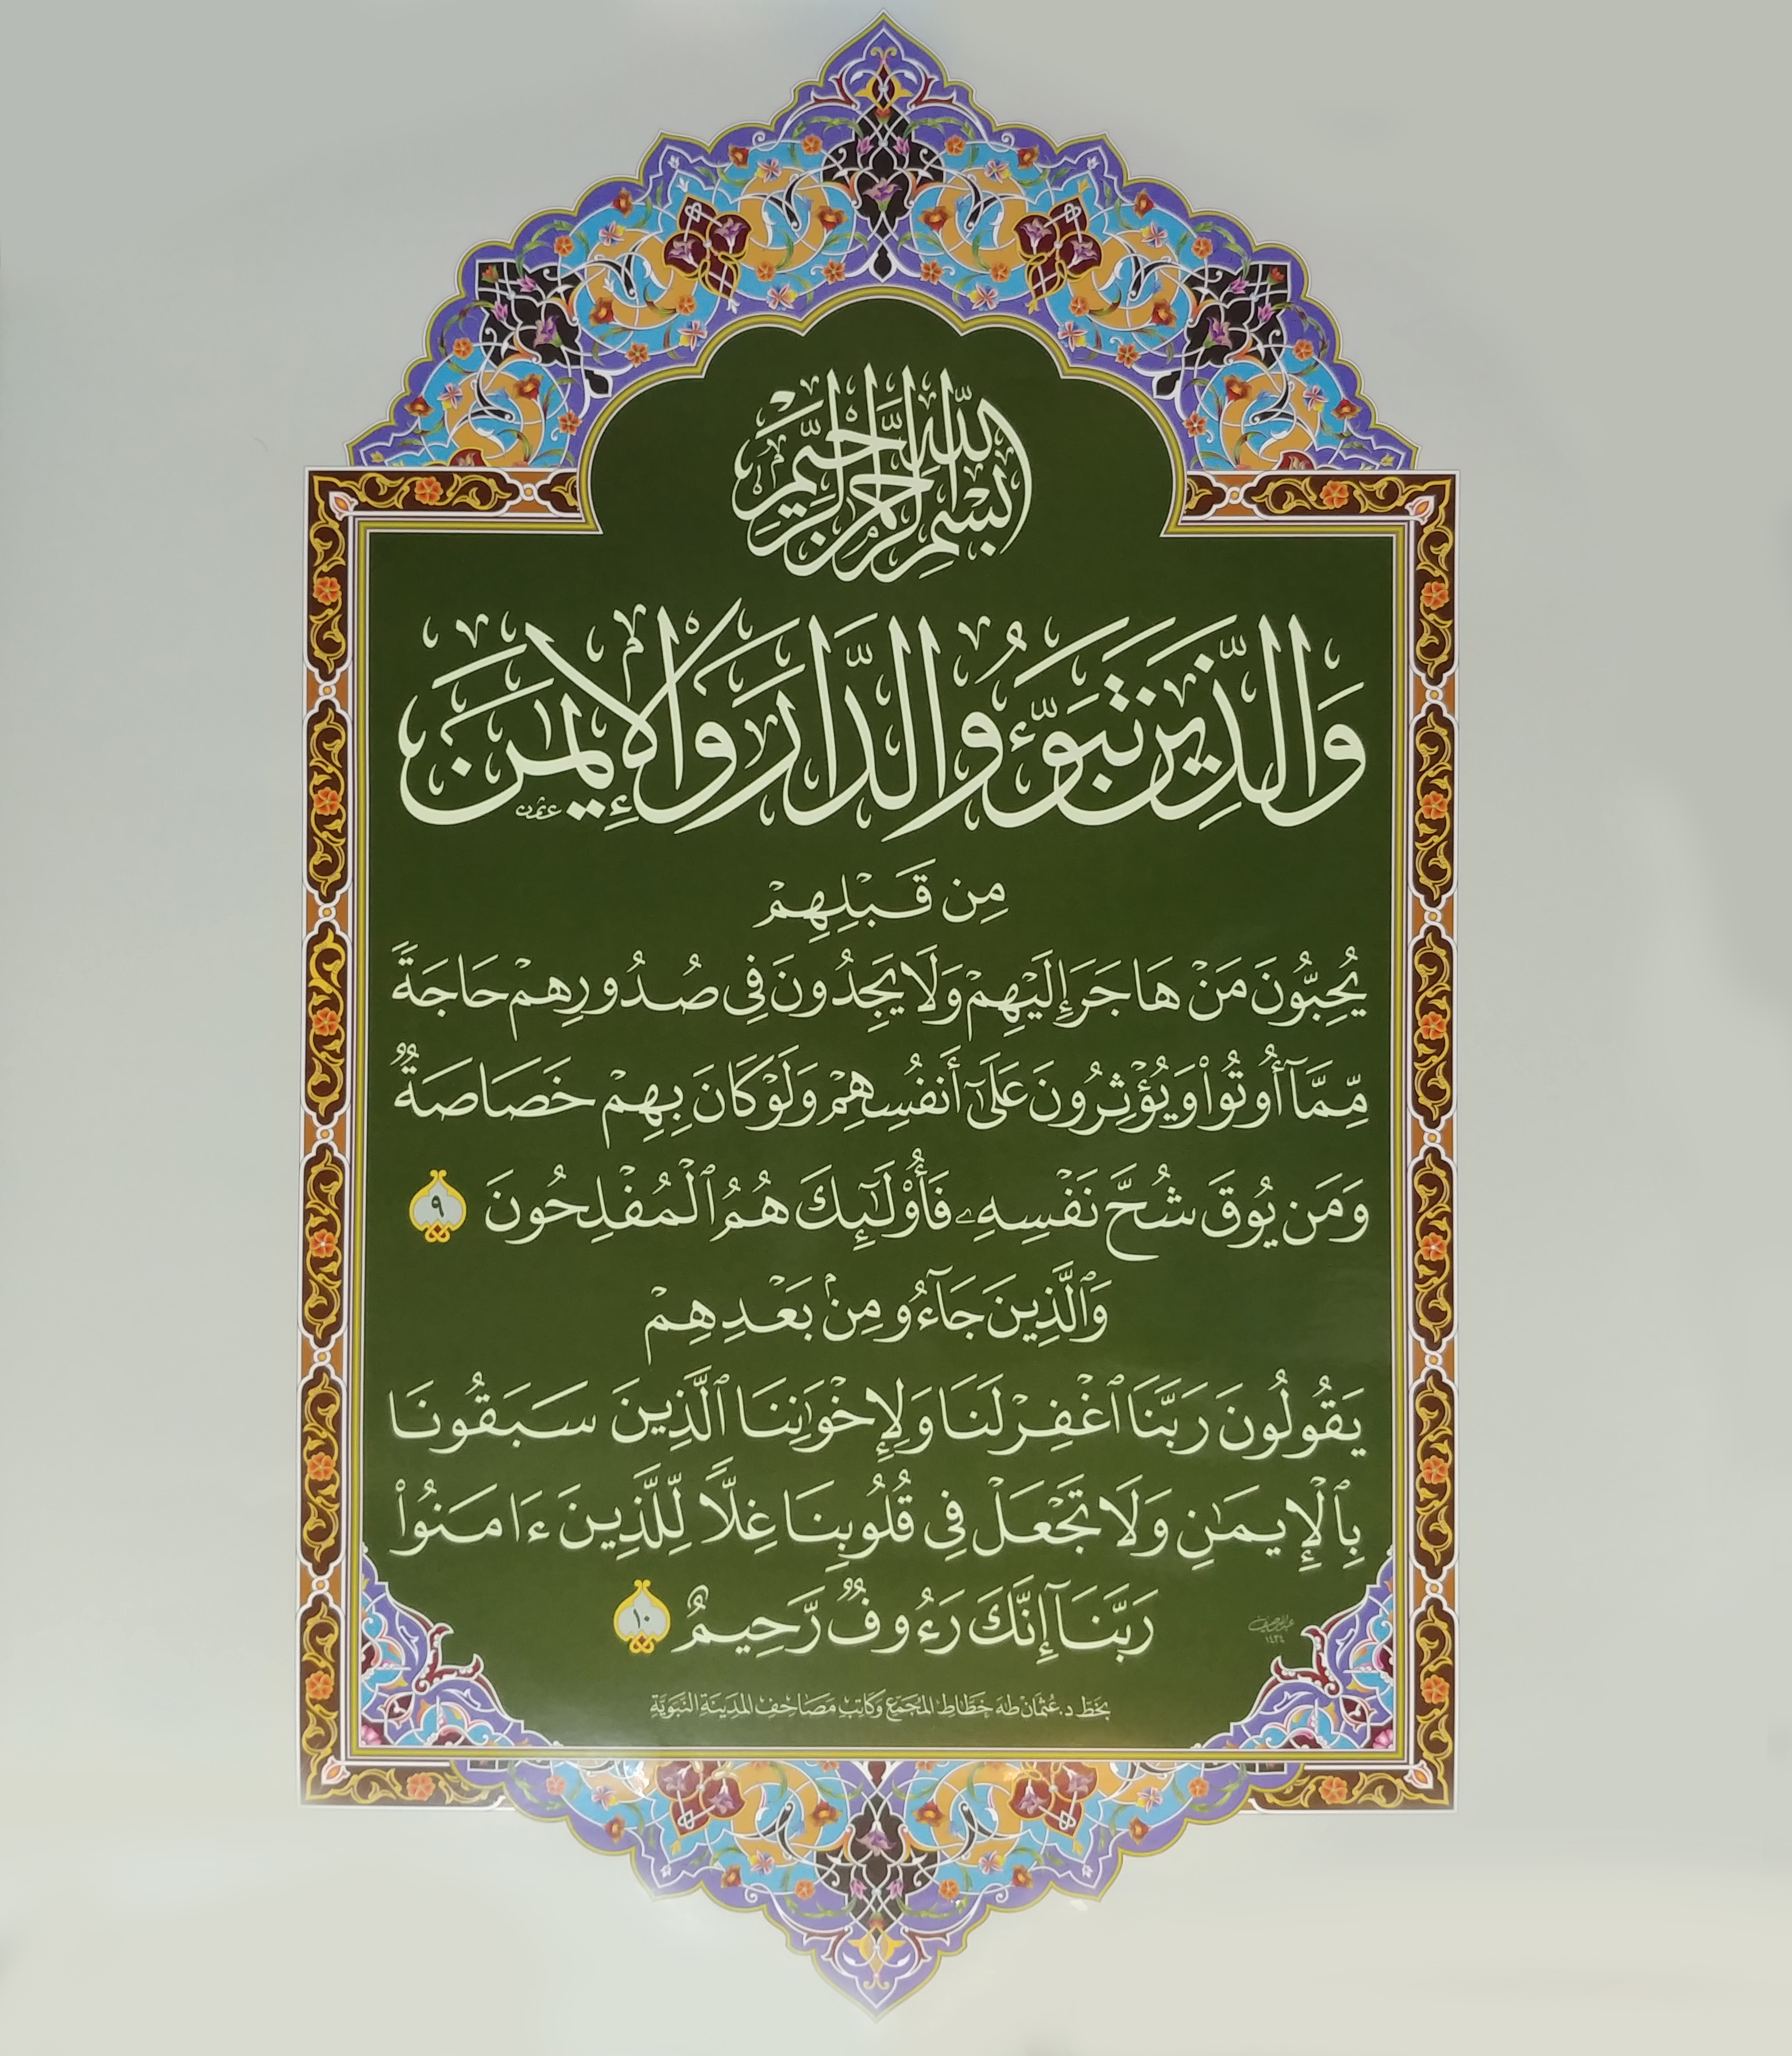 بِسْمِ اللَّهِ الرَّحْمَٰنِ الرَّحِيمِ
وَالَّذِينَ تَبَوَّءُو الدَّارَ وَالْإِيمَٰنَ
عثمٰن
مِن قَبْلِهِمْ
يُحِبُّونَ مَنْ هَاجَرَ إِلَيْهِمْ وَلَا يَجِدُونَ فِى صُدُورِهِمْ حَاجَةً
مِّمَّآ أُوتُوا۟ وَيُؤْثِرُونَ عَلَىٰٓ أَنفُسِهِمْ وَلَوْ كَانَ بِهِمْ خَصَاصَةٌ
وَمَن يُوقَ شُحَّ نَفْسِهِۦ فَأُو۟لَٰٓئِكَ هُمُ ٱلْمُفْلِحُونَ ٩
وَٱلَّذِينَ جَآءُو مِنۢ بَعْدِهِمْ
يَقُولُونَ رَبَّنَا ٱغْفِرْ لَنَا وَلِإِخْوَٰنِنَا ٱلَّذِينَ سَبَقُونَا
بِٱلْإِيمَٰنِ وَلَا تَجْعَلْ فِى قُلُوبِنَا غِلًّا لِّلَّذِينَ ءَامَنُوا۟
رَبَّنَآ إِنَّكَ رَءُوفٌ رَّحِيمٌ ١٠
١٤٣٤
بخَطّ د. عُثمَان طٰه خَطَّاط المُجَمَّع وَكَاتِب مَصَاحِفِ المَدِينَةِ النَّبَوِيَّةِ